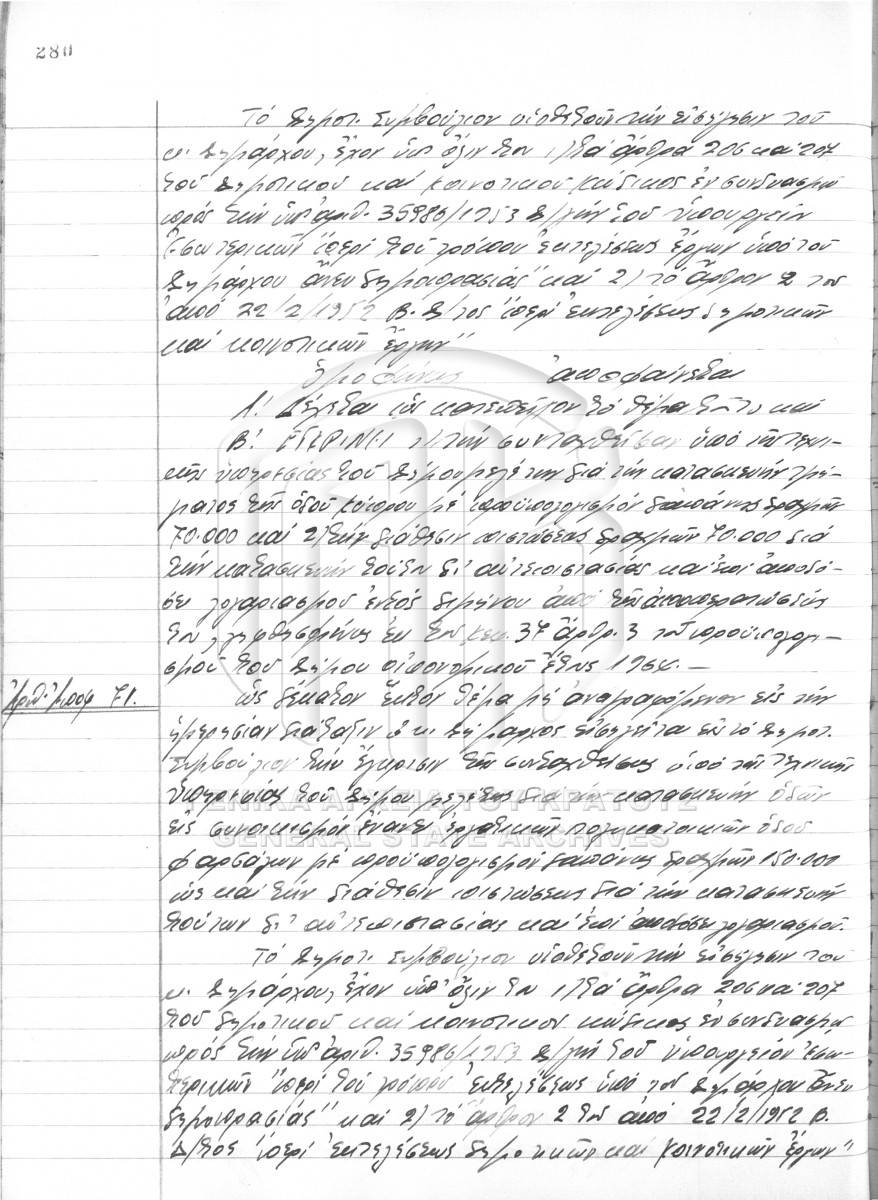 280
Τό Δημοτ. Συμβούλιον υἱοθετοῦν τήν εἰσήγησιν τοῦ
κ. Δημάρχου, ἔχον ὑπ' ὄψιν του 1) τά ἄρθρα 206 καί 207
τοῦ Δημοτικοῦ καί Κοινοτικοῦ Κώδικος ἐν συνδυασμῷ
πρός τήν ὑπ' ἀριθ. 35986/1953 Δ/γήν τοῦ Ὑπουργείου
Ἐσωτερικῶν "περί τοῦ τρόπου ἐκτελέσεως ἔργων ὑπό τοῦ
Δημάρχου ἄνευ δημοπρασίας" καί 2) τό ἄρθρον 2 τοῦ
ἀπό 22/2/1952 Β. Δ/τος "περί ἐκτελέσεως δημοτικῶν
καί κοινοτικῶν ἔργων"
Ὁμοφώνως ἀποφαίνεται
Α! Δέχεται ὡς κατεπεῖγον τό θέμα τοῦτο καί
Β! ΕΓΚΡΙΝΕΙ 1) τήν συνταχθεῖσαν ὑπό τῆς τεχνι-
κῆς ὑπηρεσίας τοῦ Δήμου μελέτην διά τήν κατασκευήν τμή-
ματος τῆς ὁδοῦ Κύπρου μέ προϋπολογισμόν δαπάνης δραχμῶν
70.000 καί 2) τήν διάθεσιν πιστώσεως δραχμῶν 70.000 διά
τήν κατασκευήν τούτου δι' αὐτεπιστασίας καί ἐπί ἀποδό-
σει λογαριασμοῦ ἐντός διμήνου ἀπό τῆς ἀποπερατώσεώς
του ληφθησομένης ἐκ τοῦ Κεφ. 37 ἄρθρ. 3 τοῦ προϋπολογι-
σμοῦ τοῦ Δήμου οἰκονομικοῦ ἔτους 1964. —
Ἀριθ. Ἀποφ 71.
Ὡς δέκατον ἕκτον θέμα μή ἀναγραφόμενον εἰς τήν
ἡμερησίαν διάταξιν ὁ κ. Δήμαρχος εἰσηγεῖται εἰς τό Δημοτ.
Συμβούλιον τήν ἔγκρισιν τῆς συνταχθείσης ὑπό τῆς τεχνικῆς
ὑπηρεσίας τοῦ Δήμου μελέτης διά τήν κατασκευήν ὁδῶν
εἰς συνοικισμόν ἔναντι ἐργατικῶν πολυκατοικιῶν ὁδοῦ
Φαρσάλων μέ προϋπολογισμόν δαπάνης δραχμῶν 150.000
ὡς καί τήν διάθεσιν πιστώσεως διά τήν κατασκευήν
τούτων δι' αὐτεπιστασίας καί ἐπί ἀποδόσει λογαριασμοῦ.
Τό Δημοτ. Συμβούλιον υἱοθετοῦν τήν εἰσήγησιν τοῦ
κ. Δημάρχου, ἔχον ὑπ' ὄψιν του 1) τά ἄρθρα 206 καί 207
τοῦ δημοτικοῦ καί κοινοτικοῦ κώδικος ἐν συνδυασμῷ
πρός τήν ὑπ' ἀριθ. 35986/1953 Δ/γήν τοῦ ὑπουργείου Ἐσω-
τερικῶν "περί τοῦ τρόπου ἐκτελέσεως ὑπό τοῦ Δημάρχου ἄνευ
δημοπρασίας" καί 2) τό ἄρθρον 2 τοῦ ἀπό 22/2/1952 Β.
Δ/τος "περί ἐκτελέσεως δημοτικῶν καί κοινοτικῶν ἔργων"
ΓΕΝΙΚΑ ΑΡΧΕΙΑ ΤΟΥ ΚΡΑΤΟΥΣ
GENERAL STATE ARCHIVES